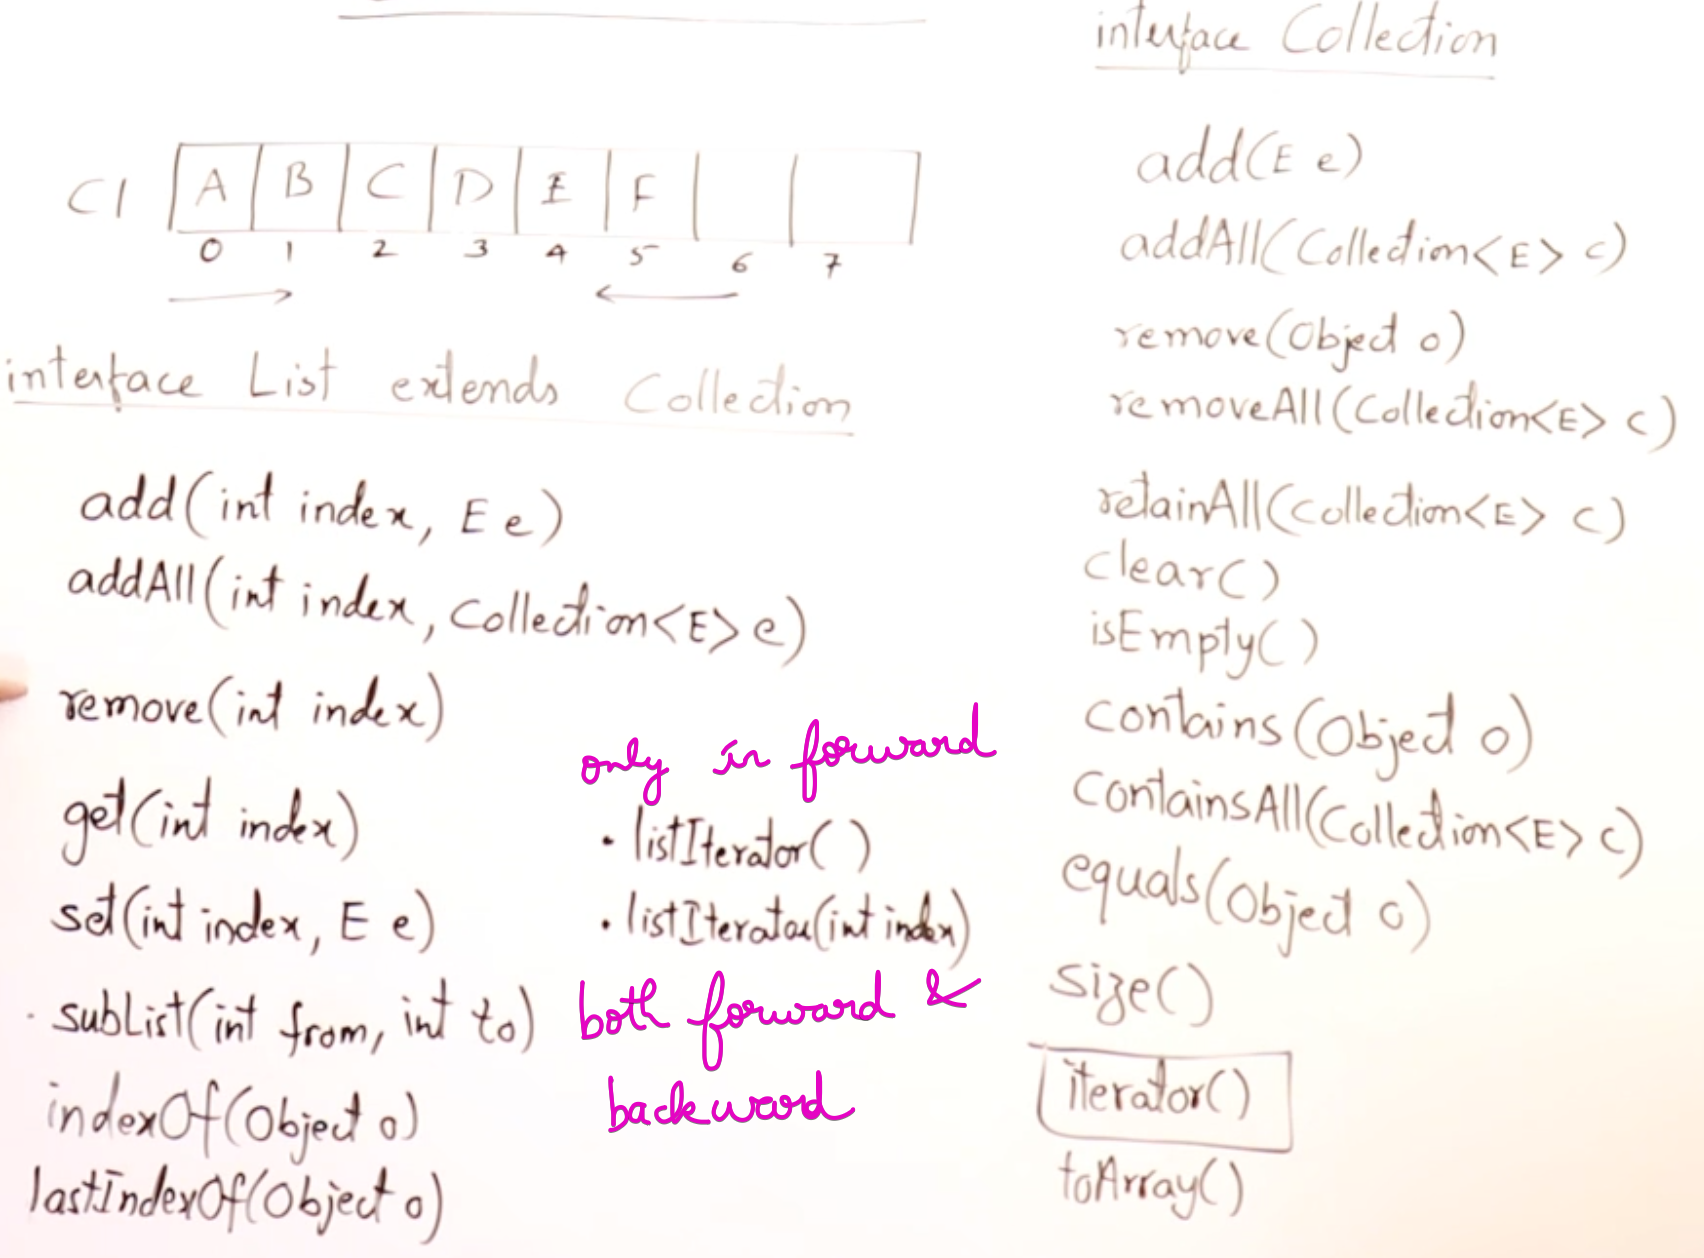 C1 A B C D E F
0 1 2 3 4 5 6 7
interface List extends Collection
add(int index, E e)
addAll(int index, Collection<E> e)
remove(int index)
get(int index)
set(int index, E e)
subList(int from, int to)
indexOf(Object o)
lastIndexOf(Object o)
only in forward
• listIterator( )
• listIterator(int index)
both forward &
backward
interface Collection
add(E e)
addAll(Collection<E> c)
remove(Object o)
removeAll(Collection<E> c)
retainAll(Collection<E> c)
clear()
isEmpty()
contains(Object o)
containsAll(Collection<E> c)
equals(Object o)
size()
iterator()
toArray()